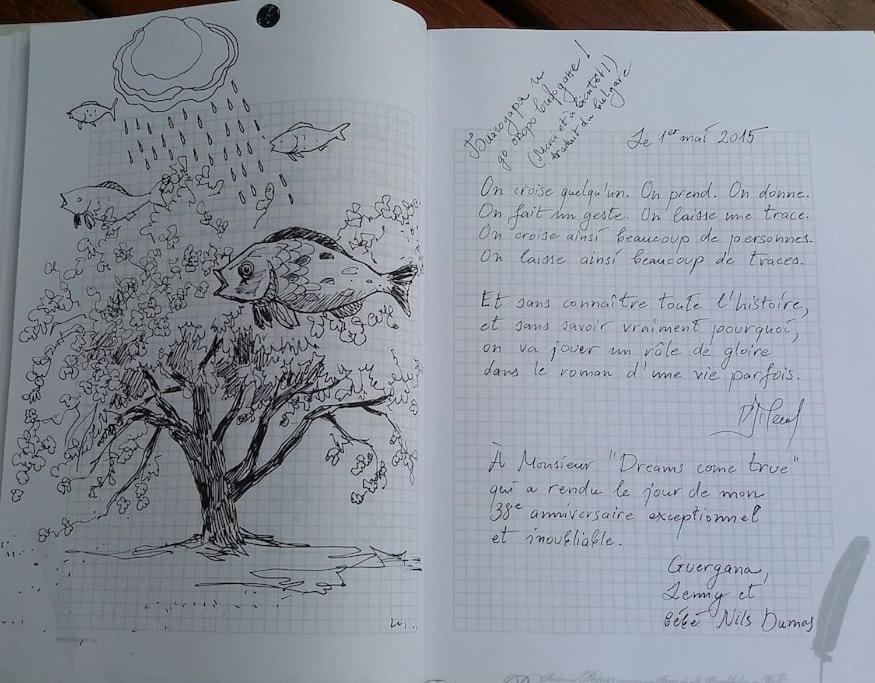 Благодаря и
до скоро виждане!
(Merci et à bientôt!)
traduit du bulgare
Le 1er mai 2015
On croise quelqu'un. On prend. On donne.
On fait un geste. On laisse une trace.
On croise ainsi beaucoup de personnes.
On laisse ainsi beaucoup de traces.
Et sans connaître toute l'histoire,
et sans savoir vraiment pourquoi,
on va jouer un rôle de gloire
dans le roman d'une vie parfois.
À Monsieur "Dreams come true"
qui a rendu le jour de mon
38e anniversaire exceptionnel
et inoubliable.
Guergana,
Jenny et
bébé Nils Dumas